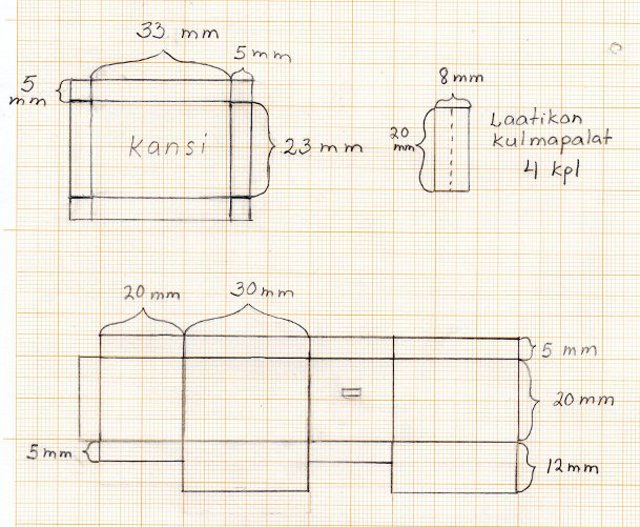 33 mm
5 mm
5
mm
Kansi
23 mm
8 mm
20
mm
Laatikon
kulmapalat
4 kpl
20 mm
30 mm
5 mm
20 mm
5 mm
12 mm